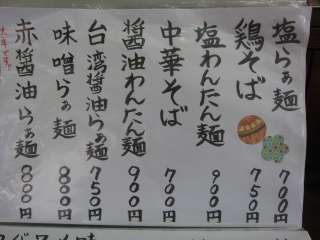 塩らぁ麺 700円
鶏そば 750円
塩わんたん麺 900円
中華そば 700円
醤油わんたん麺 900円
台湾醤油らぁ麺 750円
味噌らぁ麺 800円
赤醤油らぁ麺 800円